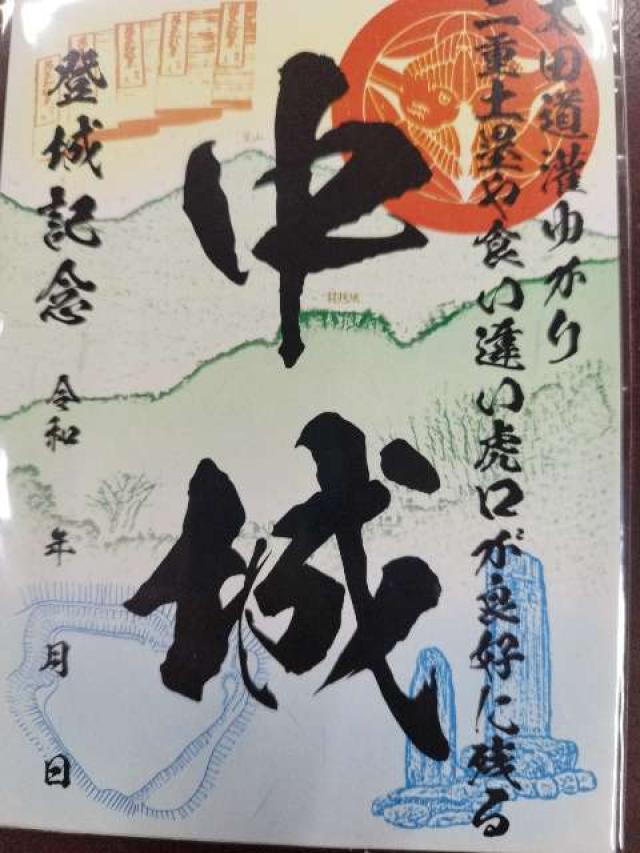 太田道灌ゆかり
二重土塁や食い違い虎口が良好に残る
中城
登城記念
令和 年 月 日